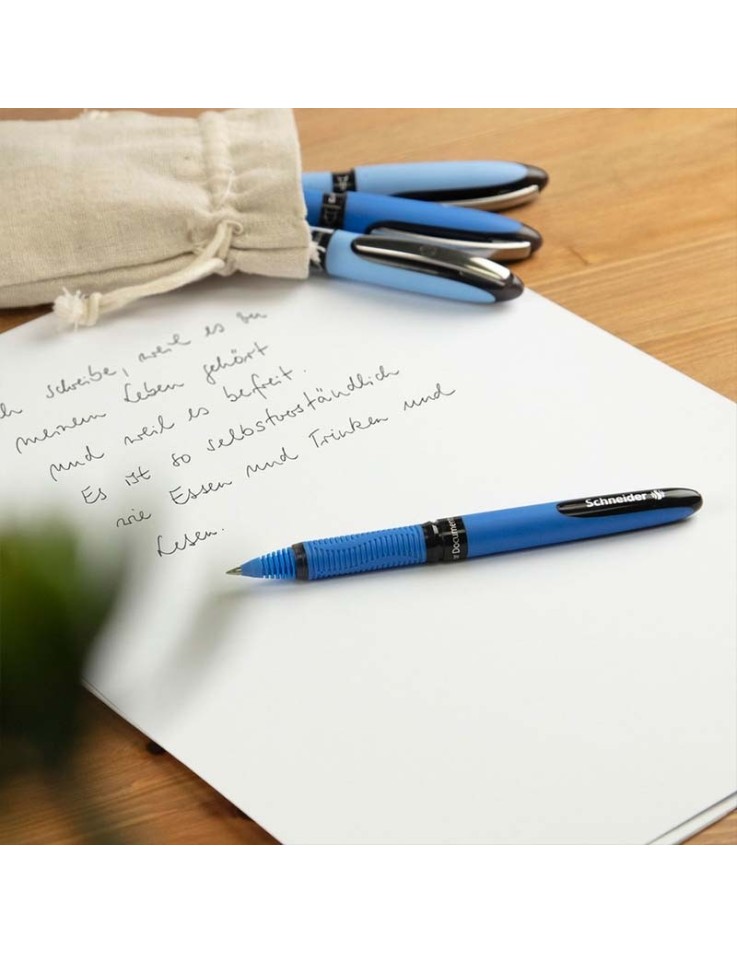 ch schreibe, weil es zu
meinem Leben gehört
und weil es befreit.
Es ist so selbstverständlich
wie Essen und Trinken und
Lesen.
Schneider
r Docume